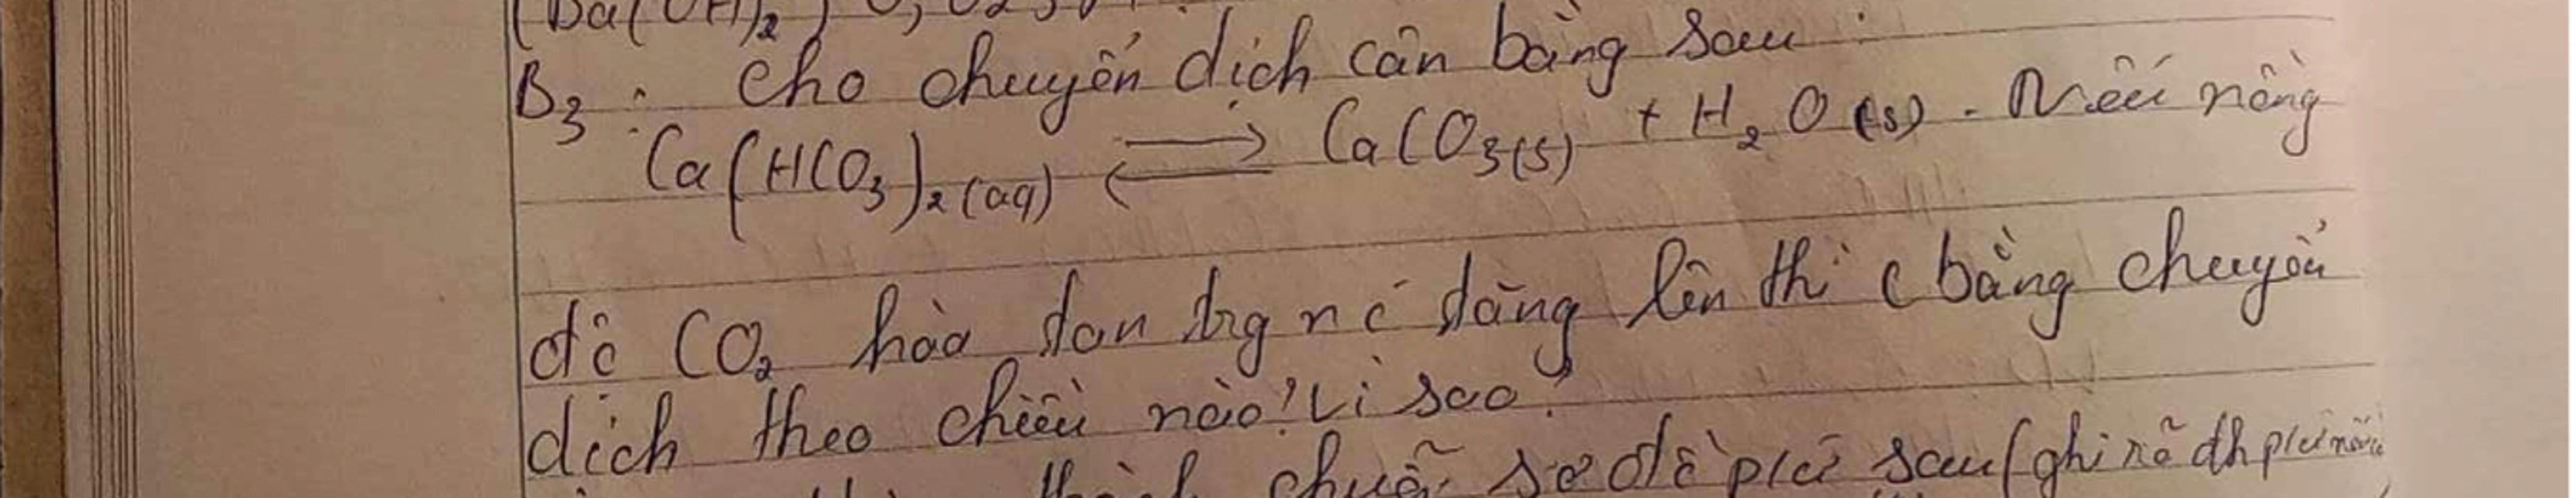 (Ba(OH)₂) 0,025
B3: Cho chuyển dịch cân bằng sau:
Ca(HCO₃)₂(aq) ⇌ CaCO₃(s) + H₂O(s). Nếu nồng
độ CO₂ hòa tan trg nc tăng lên thì c bằng chuyển
dịch theo chiều nào? Vì sao?
chuỗi sơ đồ pứ sau (ghi rõ đk pứ nếu